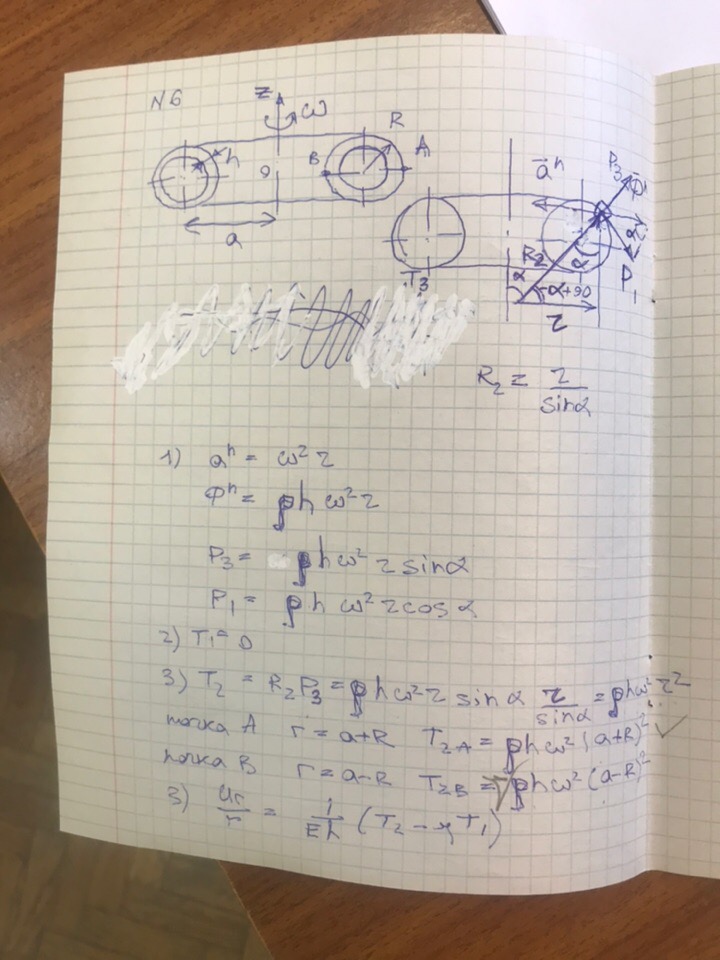 N6
z ω
R
h
A
B
0
a
ā^n
P₃
Φ^n
α
R₂
α
α
α+90
P₁
T₃
r
R₂ = r / sinα
1) a^n = ω² r
Φ^n = ρhω² r
P₃ = ρhω² r sinα
P₁ = ρhω² r cosα
2) T₁ = 0
3) T₂ = R₂P₃ = ρhω² r sinα r / sinα = ρhω² r²
точка A r = a+R T₂A = ρhω² (a+R)²
точка B r = a-R T₂B = ρhω² (a-R)²
3) Ur / r = 1 / Eh (T₂ - μT₁)